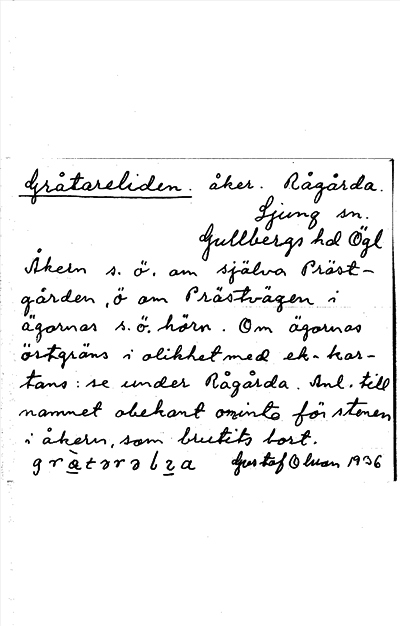 Gråtareliden. åker. Rågårda.
Ljung sn.
Gullbergs hd Ögl
Åkern s. ö. om själva Präst-
gården, ö om Prästvägen i
ägornas s. ö. hörn. Om ägornas
östgräns i olikhet med ek. kar-
tans: se under Rågårda. Anl. till
namnet obekant om inte för stenen
i åkern, som brutits bort.
Gustaf Olson 1936